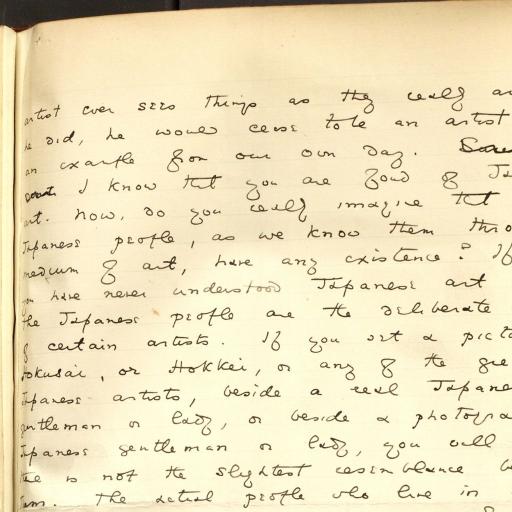 artist ever sees things as they really
he did, he would cease to be an artist
an example from our own day.
I know that you are fond of
art. Now, do you really imagine that
Japanese people, as we know them
medium of art, have any existence? If
you have never understood Japanese art
the Japanese people are the deliberate
of certain artists. If you set a
Hokusai, or Hokkei, or any of the
Japanese artists, beside a real
gentleman or lady, or beside a
Japanese gentleman or lady, you will
there is not the slightest resemblance
them. The actual people who live in